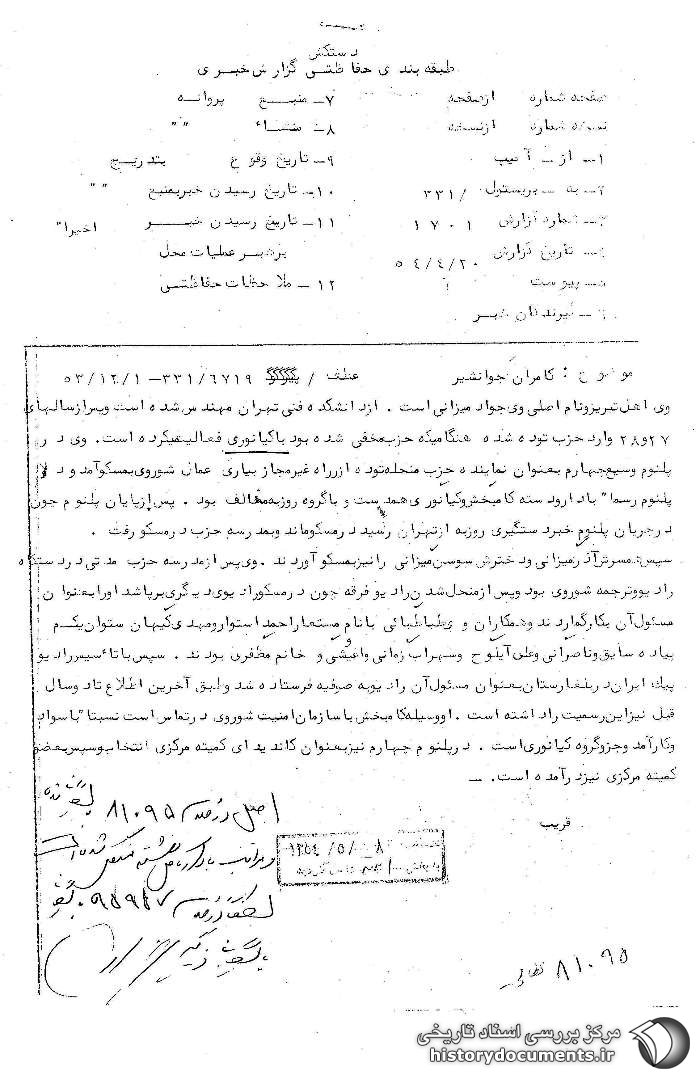 دستکش
طبقه بندی حفاظتی گزارش خبری
صفحه شماره ازصفحه
۷ـ منبع پروانه
نسخه شماره ازنسخه
۸ـ منشاء " "
۱ـ از ـ آ تیپ
۹ـ تاریخ وقوع بتدریج
۲ـ به ـ بریستول /۳۳۱
۱۰ـ تاریخ رسیدن خبربمنبع " "
۳ـ شماره گزارش ۱۷۰۱
۱۱ـ تاریخ رسیدن خبر اخیرا"
۴ـ تاریخ گزارش ۵۴/۴/۲۰
برهبر عملیات محل
۵ـ پیوست
۱۲ـ ملاحظات حفاظتی
۶ـ گیرندگان خبر
موضوع : کامران جوانشیر عطف / ۳۳۱/۶۷۱۹ـ۵۳/۱۲/۱
وی اهل تبریزونام اصلی وی جواد میزانی است . ازدانشکده فنی تهران مهندس شده است وپس ازسالهای
۲۷و۲۸ وارد حزب توده شده هنگامیکه حزب مخفی شده بود باکیانوری فعالیت میکرده است . وی در
پلنوم وسیع چهارم بعنوان نماینده حزب منحله توده ازراه غیرمجاز بیاری عمال شوروی بمسکوآمد ودر
پلنوم رسما" بادارودسته کامبخش وکیانوری همدست وباگروه روزبه مخالف بود . پس ازپایان پلنوم چون
درجریان پلنوم خبردستگیری روزبه ازتهران رسید درمسکوماند وبمدرسه حزب درمسکو رفت .
سپس همسرش آذرمیزانی ودخترش سوسن میزانی رانیزبمسکو آوردند . وی پس ازمدرسه حزب مدتی دردستگاه
رادیووترجمه شوروی بود وپس ازمنحل شدن رادیو فرقه چون درمسکورادیوی دیگری برپاشد اورابعنوان
مسئول آن بکارگماردند وهمکاران وی طباطبائی بانام مستعاراحمد استوارومهدی کیهان ستوان یکم
پیاده سابق وناصرزمانی وعلی آیلوح وسهراب زمانی واعیشی و خانم مظفری بودند . سپس باتاسیس رادیو
پیک ایران دربلغارستان بعنوان مسئول آن رادیوبه صوفیه فرستاده شد وطبق آخرین اطلاع تادوسال
قبل نیزاین سمت راداشته است . اووسیله کامبخش باسازمان امنیت شوروی درتماس است نسبتا" باسواد
وکارآمد وجزوگروه کیانوری است . درپلنوم چهارم نیزبعنوان کاندیدای کمیته مرکزی انتخاب وسپس بعضو
کمیته مرکزی نیزدرآمده است . ـ
قریب
اصل در پرونده ۸۱۰۹۵ بایگانی شده
۱۳۵۴/۵/۰۸
۸۱۰۹۵
مرکز بررسی اسناد تاریخی
historydocuments.ir